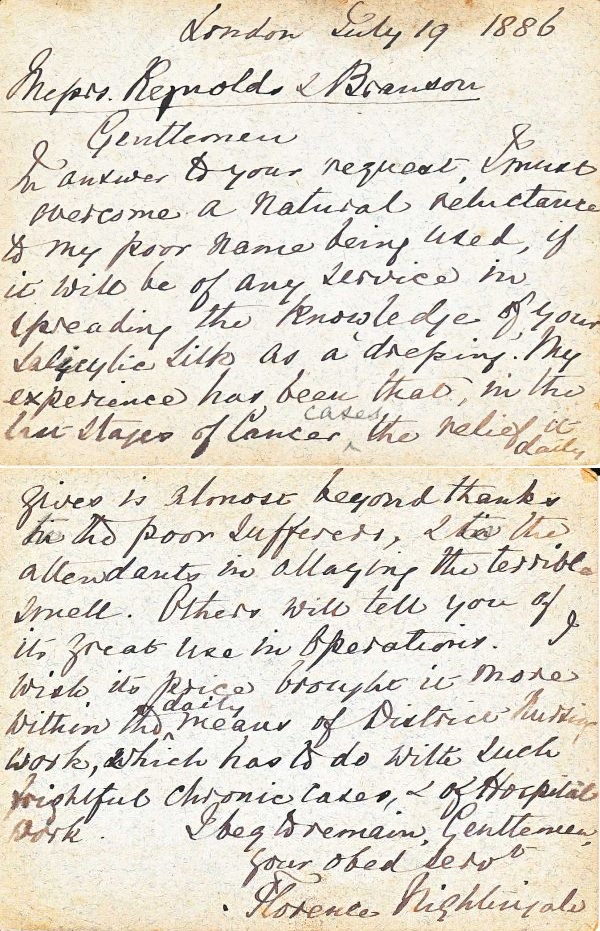 London July 19 1886
Messrs. Reynolds & Branson
Gentlemen
In answer to your request, I must
overcome a natural reluctance
to my poor name being used, if
it will be of any service in
spreading the knowledge of your
Salicylic Silk as a dressing. My
experience has been that, in the
last stages of Cancer cases, the relief it
daily
gives is almost beyond thanks
to the poor sufferers, & to the
attendants in allaying the terrible
smell. Others will tell you of
its great use in Operations. I
wish its price brought it more
within the daily means of District Nursing
work, which has to do with such
frightful chronic cases, & of Hospital
work. I beg to remain, Gentlemen,
your obed servt
Florence Nightingale